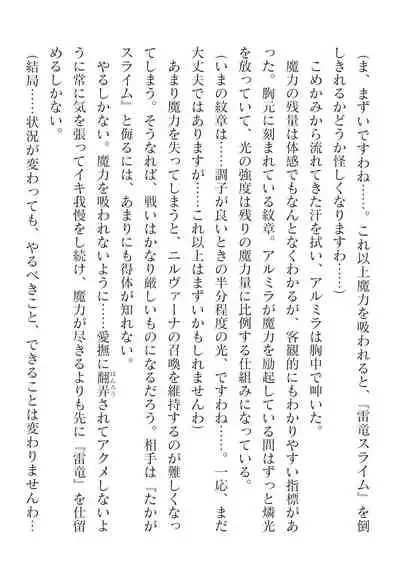 (ま、まずいですわね……。これ以上魔力を吸われると、『雷竜スライム』を倒
しきれるかどうか怪しくなりますわ……)
こめかみから流れてきた汗を拭い、アルミラは胸中で呻いた。
魔力の残量は体感でもなんとなくわかるが、客観的にもわかりやすい指標があ
った。胸元に刻まれている紋章。アルミラが魔力を励起している間はずっと燐光
を放っていて、光の強度は残りの魔力量に比例する仕組みになっている。
(いまの紋章は……調子が良いときの半分程度の光、ですわね……。一応、まだ
大丈夫ではありますが……これ以上はまずいかもしれませんわ)
あまり魔力を失ってしまうと、ニルヴァーナの召喚を維持するのが難しくなっ
てしまう。そうなれば、戦いはかなり厳しいものになるだろう。相手は『たかが
スライム』と侮るには、あまりにも得体が知れない。
やるしかない。魔力を吸われないように……愛撫に翻弄されてアクメしないよ
ほんろう
うに常に気を張ってイキ我慢をし続け、魔力が尽きるよりも先に『雷竜』を仕留
めるしかない。
(結局……状況が変わっても、やるべきこと、できることは変わりませんわ…